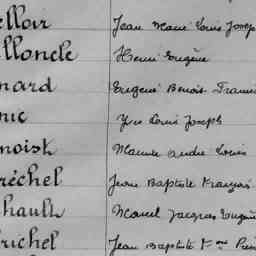 elloir Jean Marie Louis Joseph
lloncle Henri Eugène
nard Eugène Benoît Franci
nic Yve Louis Joseph
noist Maurice André Louis
réchel Jean Baptiste François
hault Marcel Jacques Eugène
richel Jean Baptiste